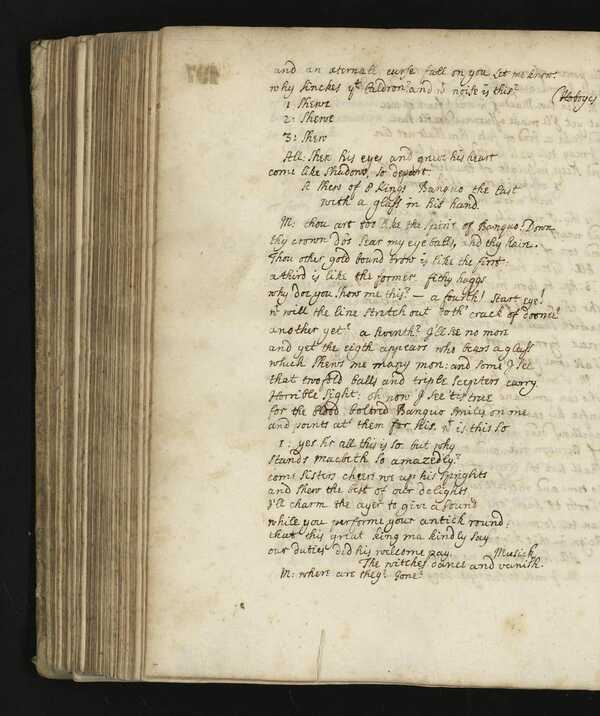 and an æternall curse fall on you Let me know.
why sinckes yt Caldron? and wt noise is this? (Hoboyes
1 Shewe
2: Shewe
3: Shew
All: Shew his eyes and grive his heart
come like Shadows, so depart.
A Shew of 8 kings Banquo the last
with a glass in his hand.
M: thou art too like the spirit of Banquo! Down
thy crown do's sear my eye balls, and thy haire.
Thou other gold bound brow is like the first
a third is like the former. filthy haggs
why doe you show me this? — a fourth! start eye!
wt will the line stretch out to th' crack of doome!
another yet? a seventh? I'll see no mor
and yet the eigth appears who bears a glass
which shews me many mor: and some I see
that twofold balls and triple scepters carry
Horrible sight: oh now I see 'tis true
for the blood: bolterd Banquo smiles on me
and points at them for his. wt is this so
1: yes sr all this is so. but why
stands Macbeth so amazedly?
come sisters cheere we up his sprights
and shew the best of our delights
I'll charm the ayer to give a sound
while you performe your antick round:
that this great king may kindly say
our duties did his welcome pay. Musick
The witches dance and vanish.
M: where are they? gone?